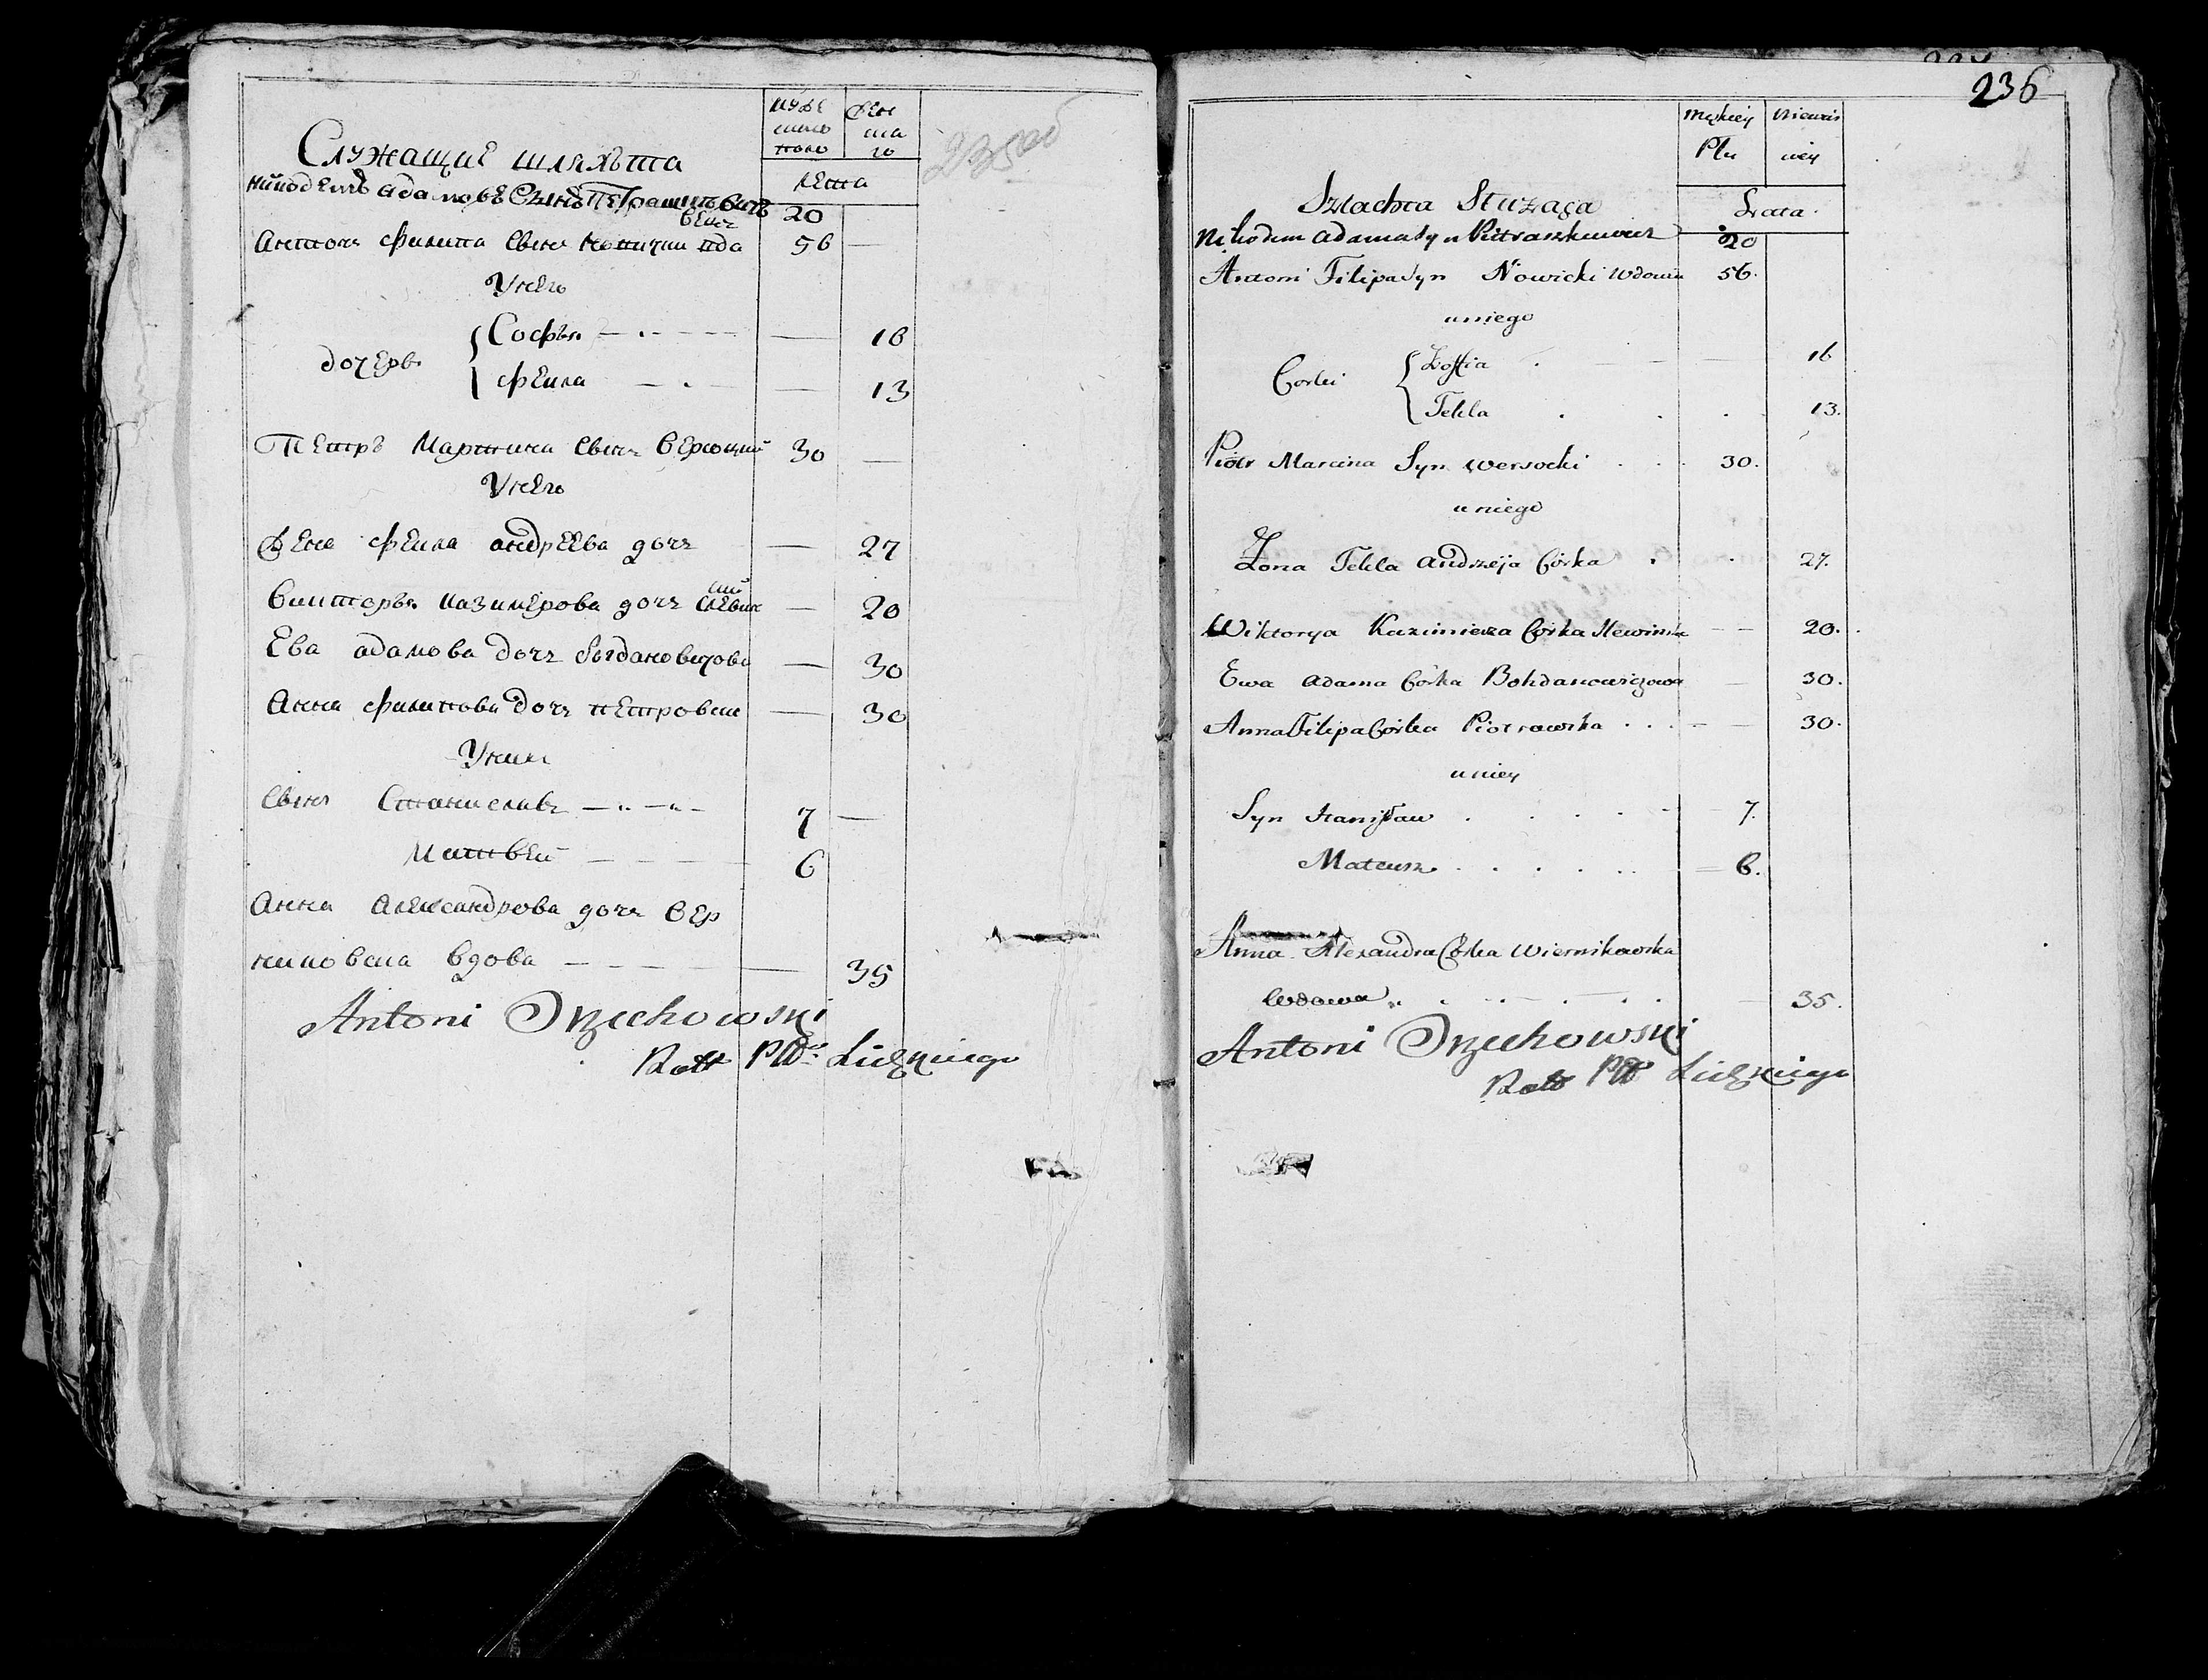 мужескаго
женскаго
235 об
Служащие шляхта
лета
Никодемъ адамовъ Сынъ Петрашкевичъ 20
Антонъ филипа сынъ Новицки вдо 56
вецъ
У него
дочерь Софья 16
фекла 13
Петръ Мартина сынъ версоцкий 30
У него
Жена фекла андреева дочъ 27
Викторья казимерова дочъ слевин 20
ска
Ева адамова дочъ богдановичова 30
Анна филипова дочъ петровска 30
У ниеи
сынъ Станиславъ 7
Матвей 6
Анна александрова дочъ вер
никовска вдова 35
Antoni Orzechowski
Rott Pttu Lidzkiego
236
męzkiey Płci
niewie ściey
Szlachta Służąca
Lata
Nikodem Adama Syn Pietraszkiewicz 20
Antoni Filipa Syn Nowicki Wdowiec 56.
u niego
Corki Zoffia 16
Tekla 13.
Piotr Marcina Syn Wersocki 30.
u niego
Żona Tekla Andrzeja Córka 27.
Wiktorya Kazimierza Córka Slewinska 20.
Ewa Adama Córka Bohdanowiczowa 30.
Anna Filipa Córka Piotrowska 30.
u niey
Syn Stanisław 7.
Mateusz 6.
Anna Alexandra Córka Wiernikowska
Wdowa 35.
Antoni Orzechowski
Rott Pttu Lidzkiego